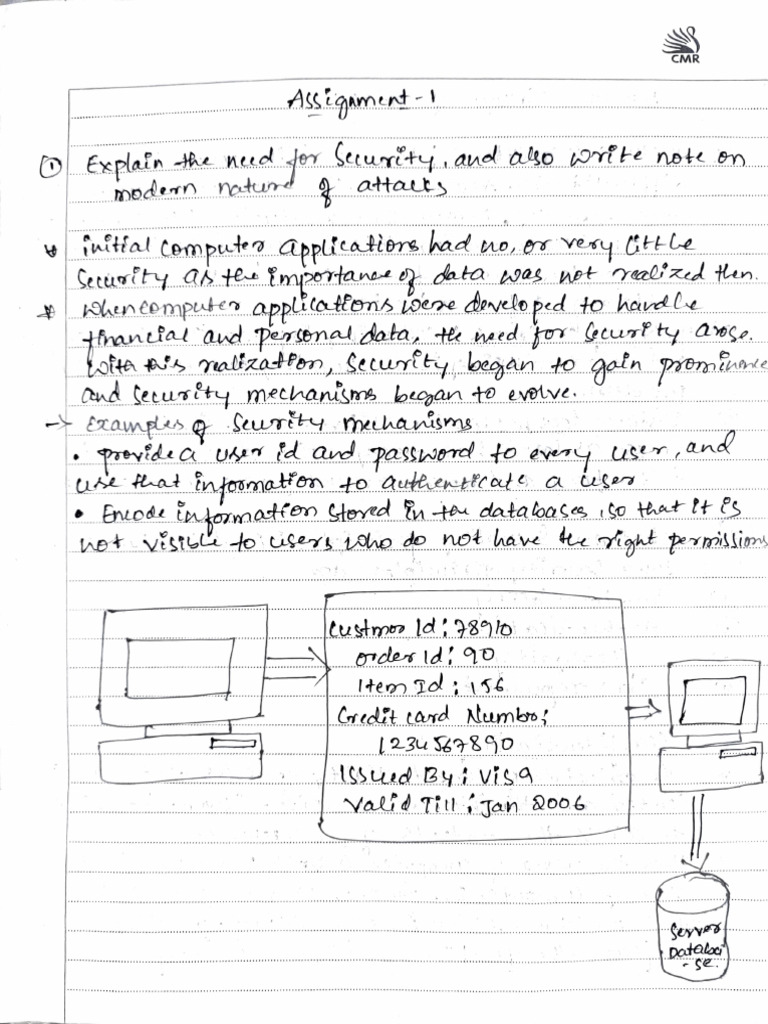 CMR
Assignment-1
① Explain the need for Security, and also write note on
modern nature of attacks
* initial computer applications had no, or very little
Security as the importance of data was not realized then.
* when computer applications were developed to handle
financial and personal data, the need for security arose.
with this realization, security began to gain prominence
and security mechanisms began to evolve.
-> Examples of Security mechanisms
• provide a user id and password to every user, and
use that information to authenticate a user
• Encode information stored in the databases, so that it is
not visible to users who do not have the right permissions
Custmor Id: 78910
order Id: 90
Item Id: 156
Credit card Numbro:
1234567890
Issued By: Visa
Valid Till: Jan 2006
Server
Databa
-se.